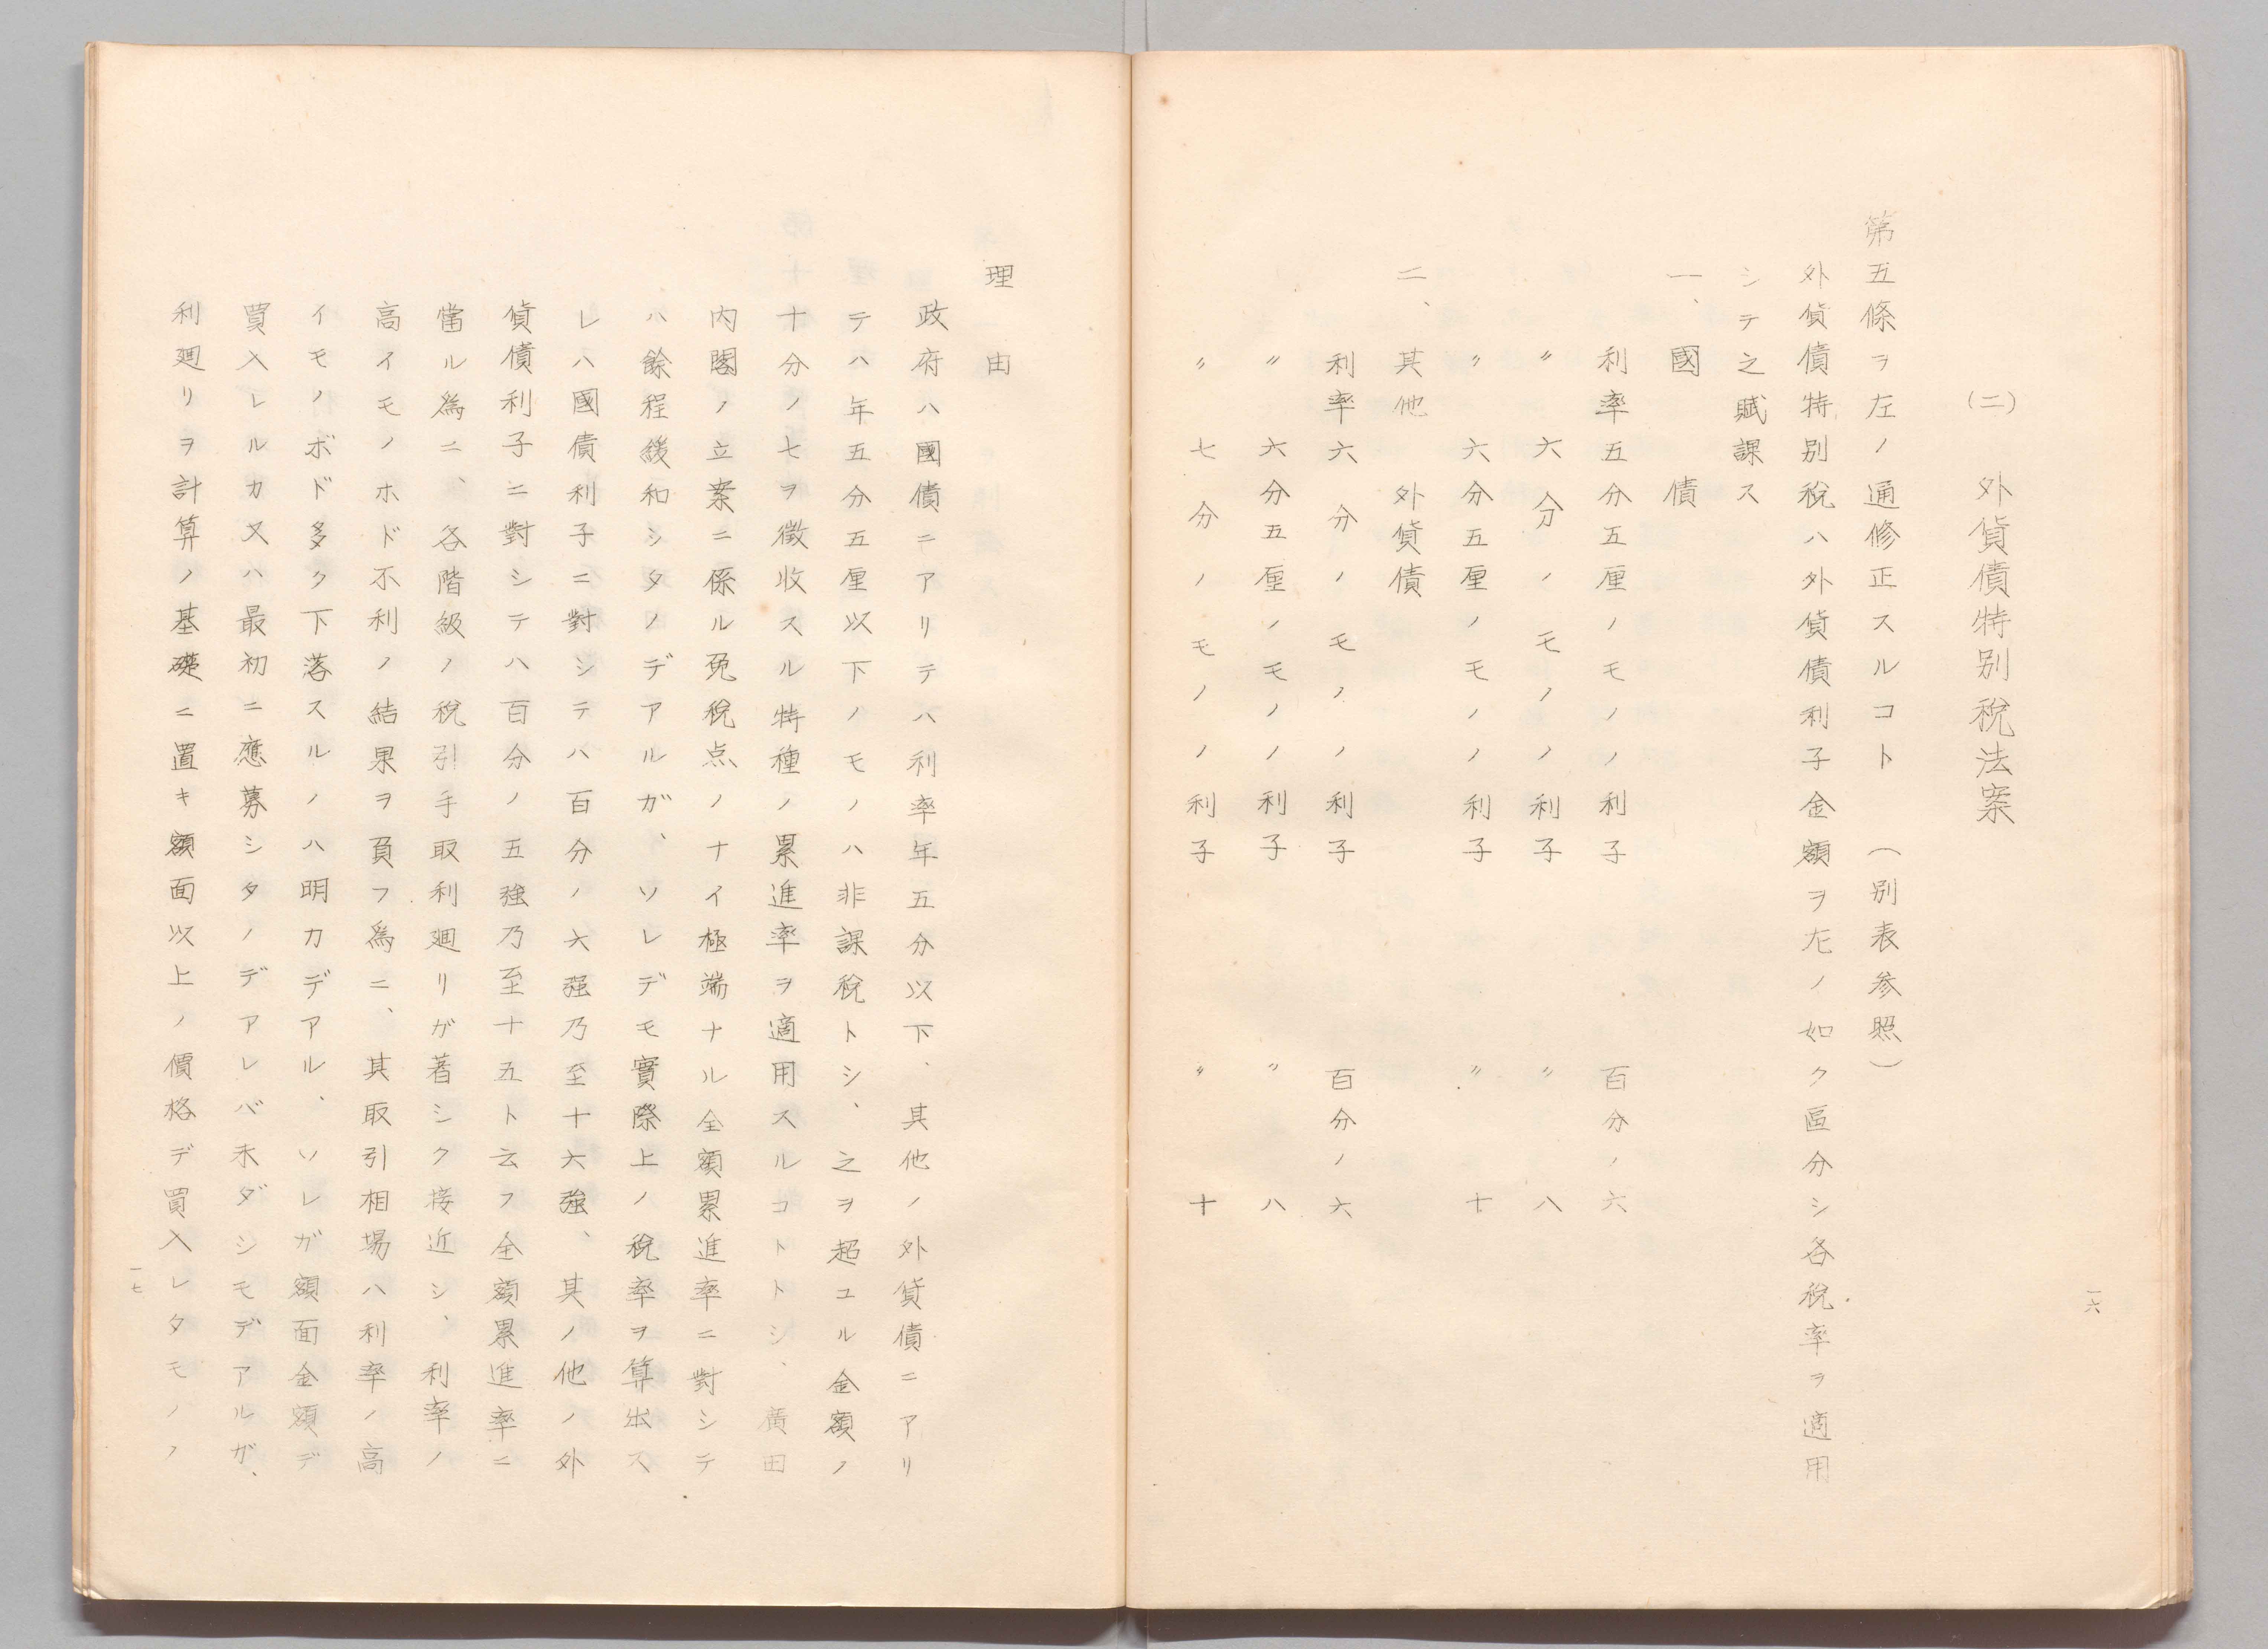 (二) 外貨債特別税法案
第五條ヲ左ノ通修正スルコト (別表参照)
外貨債特別税ハ外貨債利子金額ヲ左ノ如ク區分シ各税率ヲ適用
シテ之賦課ス
一、國債
利率五分五厘ノモノノ利子 百分ノ六
〃 六分ノモノノ利子 〃 八
〃 六分五厘ノモノノ利子 〃 十
二、其他外貨債
利率六分ノモノノ利子 百分ノ六
〃 六分五厘ノモノノ利子 〃 八
〃 七分ノモノノ利子 〃 十
一六
理由
政府ハ國債ニアリテハ利率年五分以下、其他ノ外貨債ニアリ
テハ年五分五厘以下ノモノハ非課税トシ、之ヲ超ユル金額ノ
十分ノ七ヲ徴收スル特種ノ累進率ヲ適用スルコトトシ、廣田
内閣ノ立案ニ係ル免税点ノナイ極端ナル全額累進率ニ對シテ
ハ餘程緩和シタノデアルガ、ソレデモ實際上ノ税率ヲ算出ス
レハ國債利子ニ對シテハ百分ノ六强乃至十六強、其ノ他ノ外
貨債利子ニ對シテハ百分ノ五強乃至十五ト云フ全額累進率ニ
當ル為ニ、各階級ノ税引手取利廻リガ著シク接近シ、利率ノ
高イモノホド不利ノ結果ヲ負フ為ニ、其取引相場ハ利率ノ高
イモノボド多ク下落スルノハ明カデアル、ソレガ額面金額デ
買入レルカ又ハ最初ニ應募シタノデアレバ未ダシモデアルガ、
利廻リヲ計算ノ基礎ニ置キ額面以上ノ價格デ買入レタモノノ
一七